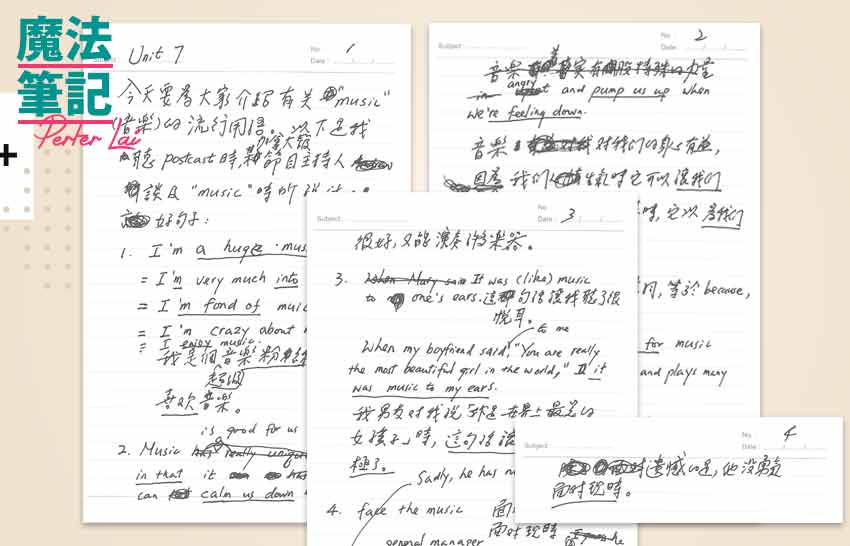 魔法
筆記
Perter Lai
Unit 7
No. 1
Date:
今天要為大家介紹有關 "music"
(音樂)的流行用語。以下是我
聽 postcast 時,節目主持人
談及 "music" 時所
好句子:
1. I'm a huge music
= I'm very much into
= I'm fond of music
= I'm crazy about
= I enjoy music.
我是個音樂粉絲
超迷
喜歡音樂。
is good for us
2. Music
in that it can calm us down
Subject:
No. 2
Date:
音樂 有 特殊的力量
angry and pump us up when
we're feeling down.
音樂 對我們的身心有益,
因為 我們 生氣時它可以讓我們
時,它以 為我們
同,等於 because,
for music
and plays many
Subject:
No. 3
Date:
很好,又能演奏很多樂器。
3. It was (like) music
to one's ears. 這句話讓我聽了很
悅耳。
to me
When my boyfriend said, "You are really
the most beautiful girl in the world," it
was music to my ears.
我男友對我說「妳是世界上最美的
女孩子」時,這句話讓
極了。
Sadly, he has
4. face the music 面
面對現時
general manager he
Subject:
No. 4
Date:
遺憾的是,他沒勇氣
面對現時。